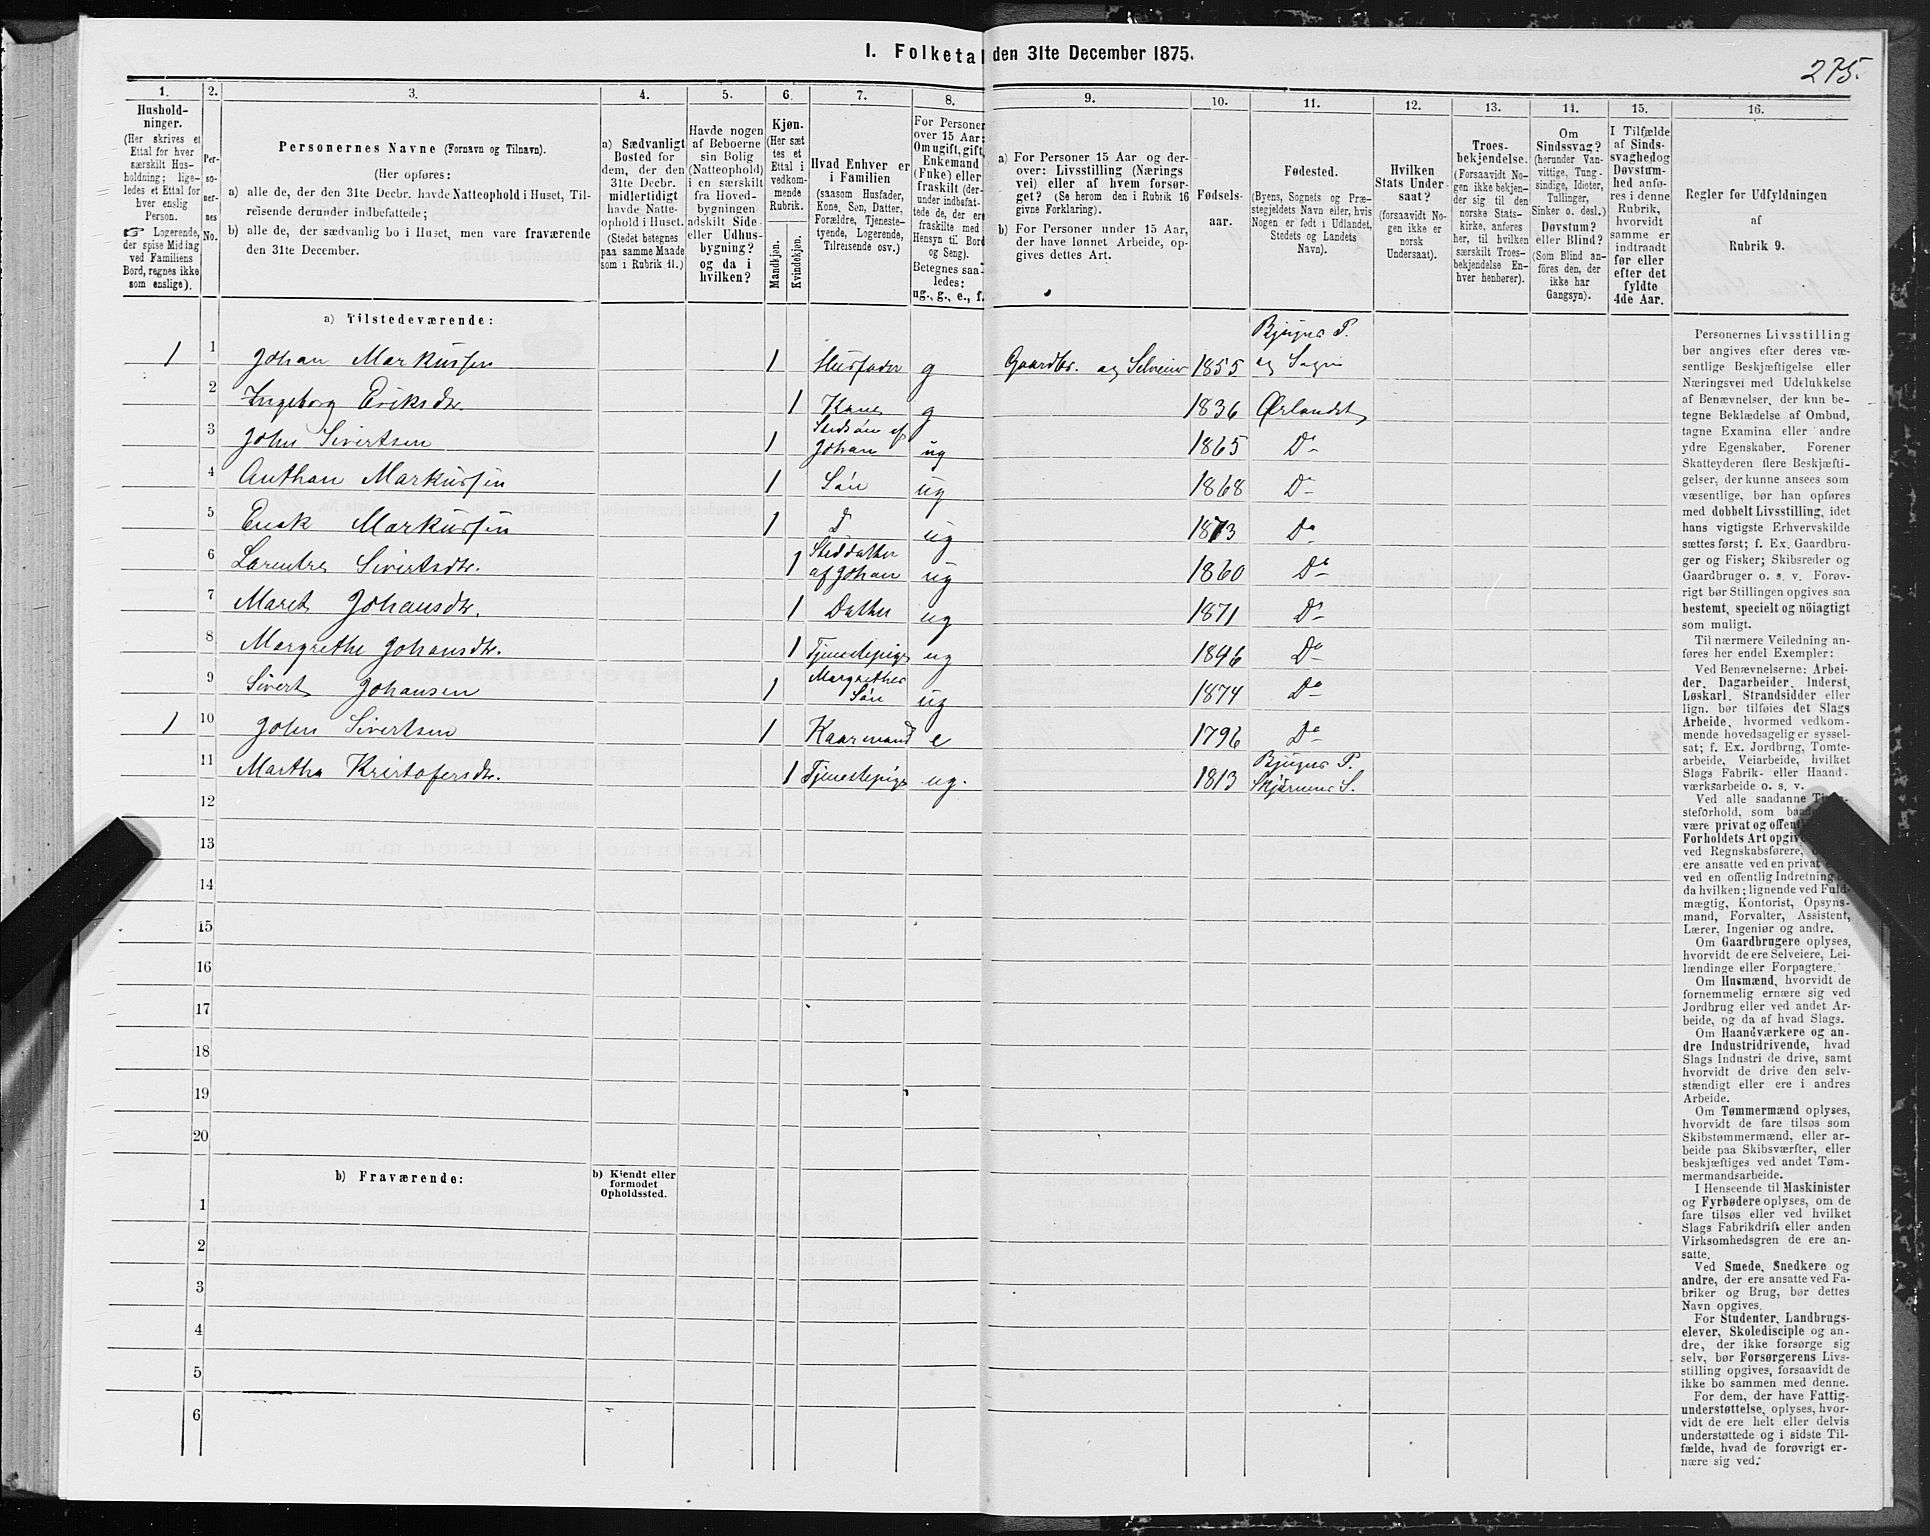 I. Folketal den 31te December 1875.
275.
1.
Hushold-
ninger.
(Her skrives et
Ettal for hver
særskilt Hus-
holdning; lige-
ledes et Ettal for
hver enslig
Person.
☞ Logerende,
der spise Middag
ved Familiens
Bord, regnes ikke
som enslige).
2.
Per-
so-
ner-
nes
No.
3.
Personernes Navne (Fornavn og Tilnavn).
(Her opføres:
a) alle de, der den 31te Decbr. havde Natteophold i Huset, Til-
reisende derunder indbefattede;
b) alle de, der sædvanlig bo i Huset, men vare fraværende
den 31te December.
4.
a) Sædvanligt
Bosted for
dem, der den
31te Decbr.
midlertidigt
havde Natte-
ophold i Huset.
(Stedet betegnes
paa samme Maade
som i Rubrik 11.)
5.
Havde nogen
af Beboerne
sin Bolig
(Natteophold)
i en særskilt
fra Hoved-
bygningen
adskilt Side-
eller Udhus-
bygning?
og da i
hvilken?
6.
Kjøn.
(Her sæt
tes et
Ettal i
vedkom-
mende
Rubrik.
Mandkjøn.
Kvindekjøn.
7.
Hvad Enhver er
i Familien
(saasom Husfader,
Kone, Søn, Datter,
Forældre, Tjeneste-
tyende, Logerende,
Tilreisende osv.)
8.
For Personer
over 15 Aar:
Om ugift, gift,
Enkemand
(Enke) eller
fraskilt (der-
under indbefat-
tede de, der ere
fraskilte med
Hensyn til Bord
og Seng).
Betegnes saa-
ledes:
ug., g., e., f.
9.
a) For Personer 15 Aar og der-
over: Livsstilling (Nærings
vei) eller af hvem forsør-
get? (Se herom den i Rubrik 16
givne Forklaring).
b) For Personer under 15 Aar,
der have lønnet Arbeide, op-
gives dettes Art.
10.
Fødsels-
aar.
11.
Fødested.
(Byens, Sognets og Præ-
stegjeldets Navn eller, hvis
Nogen er født i Udlandet,
Stedets og Landets
Navn).
12.
Hvilken
Stats Under-
saat?
(forsaavidt No-
gen ikke er
norsk
Undersaat).
13.
Troes-
bekjendelse.
(Forsaavidt No-
gen ikke bekjen-
der sig til den
norske Stats-
kirke, anføres
her, til hvilken
særskilt Troes-
bekjendelse En-
hver henhører).
14.
Om
Sindssvag?
(herunder Van-
vittige, Tung-
sindige, Idioter,
Tullinger,
Sinker o. desl.)
Døvstum?
eller Blind?
(Som Blind an-
føres den, der
ikke har
Gangsyn).
15.
I Tilfælde
af Sinds-
svaghed og
Døvstum-
hed anfø-
res i denne
Rubrik,
hvorvidt
samme er
indtraadt
før eller
efter det
fyldte
4de Aar.
16.
Regler for Udfyldningen
af
Rubrik 9.
a) Tilstedeværende:
1 1 Johan Markussen 1 Husfader g Gaardbr. og Selveier 1855 Bjugns P. og Sogn
2 Ingeborg Eriksdtr. 1 Kone g 1836 Ørlandet
3 John Sivertsen 1 Stedsøn af Johan ug 1865 Do
4 Anthon Markussen 1 Søn ug 1868 Do
5 Erik Markussen 1 D ug 1873 Do
6 Larentze Sivertsdtr. 1 Steddatter af Johan ug 1860 Do
7 Maret Johansdtr. 1 Datter ug 1871 Do
8 Margrethe Johansdtr. 1 Tjenestepige ug 1846 Do
9 Sivert Johansen 1 Margrethes Søn ug 1874 Do
1 10 John Sivertsen 1 Kaarmand e 1796 Do
11 Martha Kristofersdtr. 1 Tjenestepige ug. 1813 Bjugns P. Skjørnens S.
12
13
14
15
16
17
18
19
20
b) Fraværende:
b) Kjendt eller
formodet
Opholdssted.
1
2
3
4
5
6
Personernes Livsstilling
bør angives efter deres væ-
sentlige Beskjæftigelse eller
Næringsvei med Udelukkelse
af Benævnelser, der kun be-
tegne Beklædelse af Ombud,
tagne Examina eller andre
ydre Egenskaber. Forener
Skatteyderen flere Beskjæfti-
gelser, der kunne ansees som
væsentlige, bør han opføres
med dobbelt Livsstilling, idet
hans vigtigste Erhvervskilde
sættes først; f. Ex. Gaardbru-
ger og Fisker; Skibsreder og
Gaardbruger o. s. v. Forøv-
rigt bør Stillingen opgives saa
bestemt, specielt og nöiagtigt
som muligt.
Til nærmere Veiledning an-
føres her endel Exempler:
Ved Benævnelserne: Arbei-
der, Dagarbeider, Inderst,
Løskarl, Strandsidder eller
lign. bør tilføies det Slags
Arbeide, hvormed vedkom-
mende hovedsagelig er syssel-
sat; f. Ex. Jordbrug, Tomte-
arbeide, Veiarbeide, hvilket
Slags Fabrik- eller Haand-
værksarbeide o. s. v.
Ved alle saadanne
steforhold, som
være privat og
Forholdets Art
ved Regnskabsførere,
ere ansatte ved en privat
ved en offentlig Indretning
da hvilken; lignende ved Fuld-
mægtig, Kontorist, Opsyns-
mand, Forvalter, Assistent,
Lærer, Ingeniør og andre.
Om Gaardbrugere oplyses,
hvorvidt de ere Selveiere, Lei-
lændinge eller Forpagtere.
Om Husmænd, hvorvidt de
fornemmelig ernære sig ved
Jordbrug eller ved andet Ar-
beide, og da af hvad Slags.
Om Haandværkere og an-
dre Industridrivende, hvad
Slags Industri de drive, samt
hvorvidt de drive den selv-
stændigt eller ere i andres
Arbeide.
Om Tømmermænd oplyses,
hvorvidt de fare tilsøs som
Skibstømmermænd, eller ar-
beide paa Skibsværfter, eller
beskjæftiges ved andet Tøm-
mermandsarbeide.
I Henseende til Maskinister
og Fyrbødere oplyses, om de
fare tilsøs eller ved hvilket
Slags Fabrikdrift eller anden
Virksomhedsgren de ere an-
satte.
Ved Smede, Snedkere og
andre, der ere ansatte ved Fa-
briker og Brug, bør dettes
Navn opgives.
For Studenter, Landbrugs-
elever, Skoledisciple og an-
dre, der ikke forsørge sig
selv, bør Forsørgerens Livs-
stilling opgives, forsaavidt de
ikke bo sammen med denne.
For dem, der have Fattig-
understøttelse, oplyses, hvor-
vidt de ere helt eller delvis
understøttede og i sidste Til-
fælde, hvad de forøvrigt er-
nære sig ved.